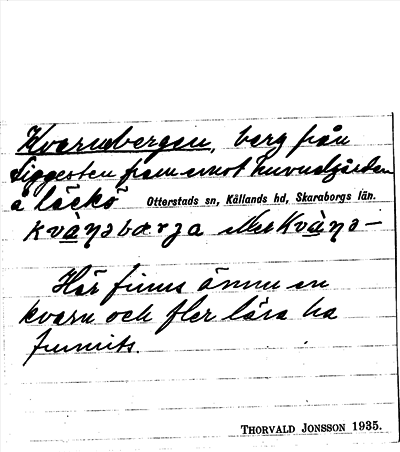 Kvarnabergen, berg från
Siggesten fram emot huvudgården
a läckö Otterstads sn, Kållands hd, Skaraborgs län.
kvàŋəbærja Kvàŋə-
Här finns ännu en
kvarn och fler lära ha
funnits.
THORVALD JONSSON 1935.